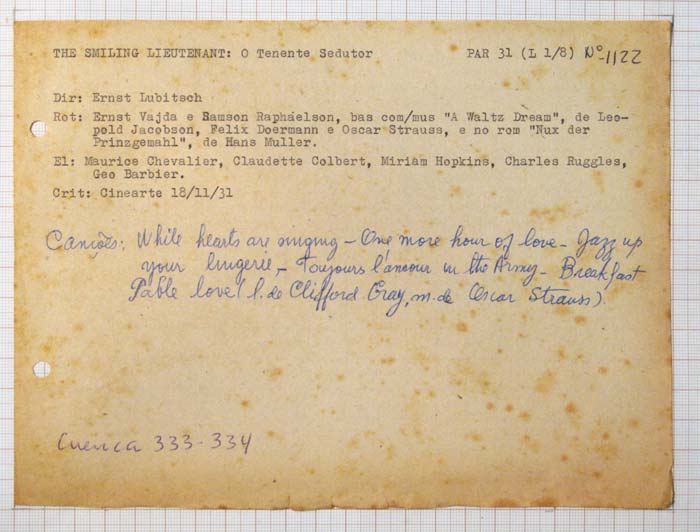 THE SMILING LIEUTENANT: O Tenente Sedutor PAR 31 (L 1/8) Nº-1122
Dir: Ernst Lubitsch
Rot: Ernst Vajda e Samson Raphaelson, bas com/mus "A Waltz Dream", de Leo-
pold Jacobson, Felix Doermann e Oscar Strauss, e no rom "Nux der
Prinzgemahl", de Hans Muller.
El: Maurice Chevalier, Claudette Colbert, Miriam Hopkins, Charles Ruggles,
Geo Barbier.
Crit: Cinearte 18/11/31
Canções: While hearts are singing - One more hour of love - Jazz up
your lingerie, - Toujours l'amour in the Army - Breakfast
Table love (l. de Clifford Gray, m. de Oscar Strauss).
Cuenca 333-334